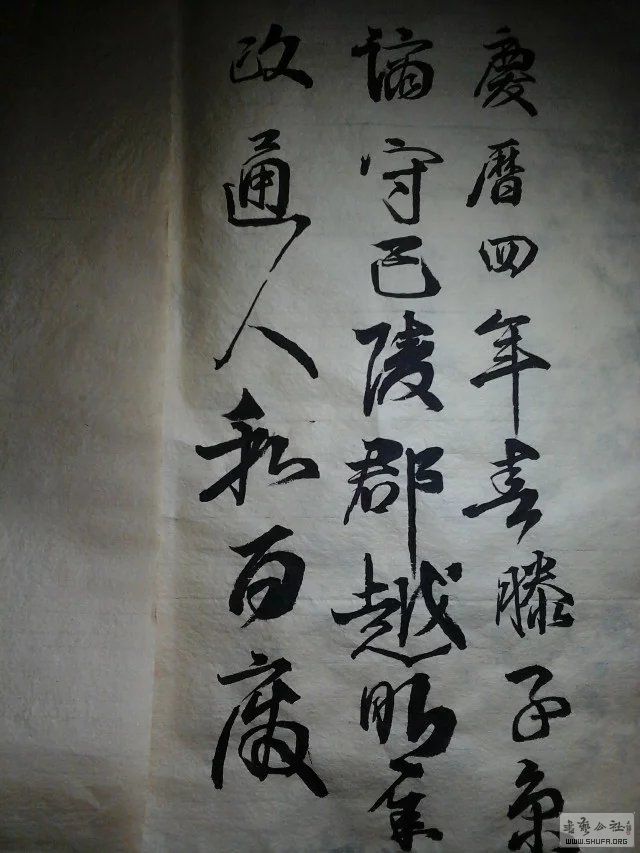 慶曆四年春滕子京
謫守巴陵郡越明年
政通人和百廢
書藝公社
WWW.SHUFA.ORG